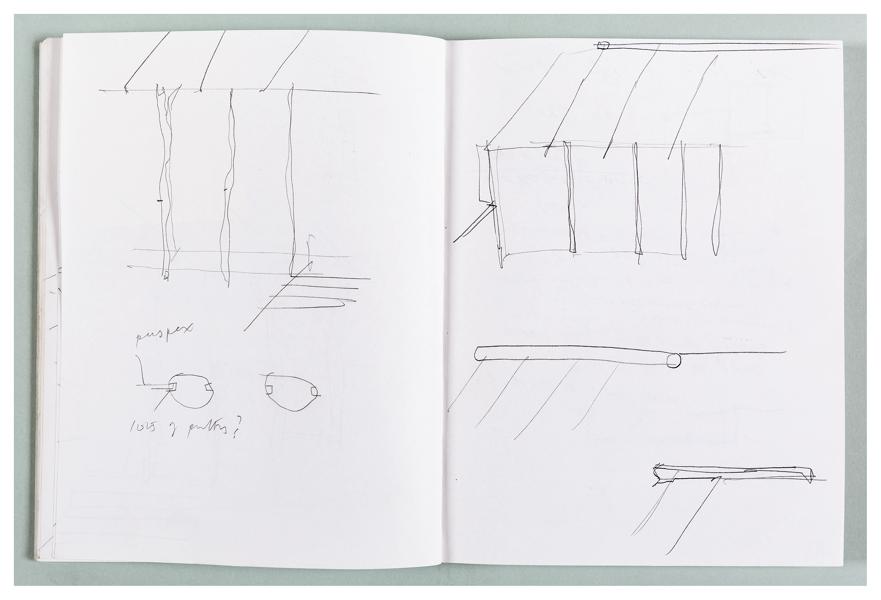 perspex
lots of putties?